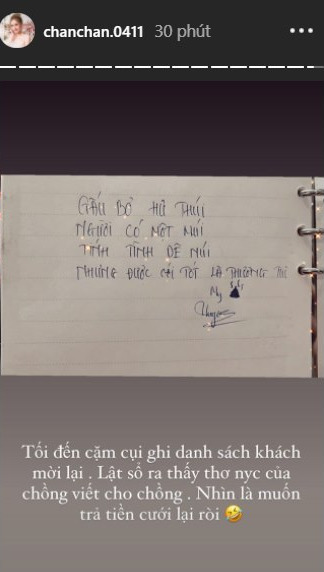 chanchan.0411 30 phút
GẤU BỎ HŨ THÚI
NGƯỜI CÓ MỘT MÚI
TÍNH TÌNH DÊ NÚI
NHƯNG ĐƯỢC CÁI TỐT LÀ THƯƠNG
Tối đến cặm cụi ghi danh sách khách
mời lại . Lật sổ ra thấy thơ nyc của
chồng viết cho chồng . Nhìn là muốn
trả tiền cưới lại ròi 🤣